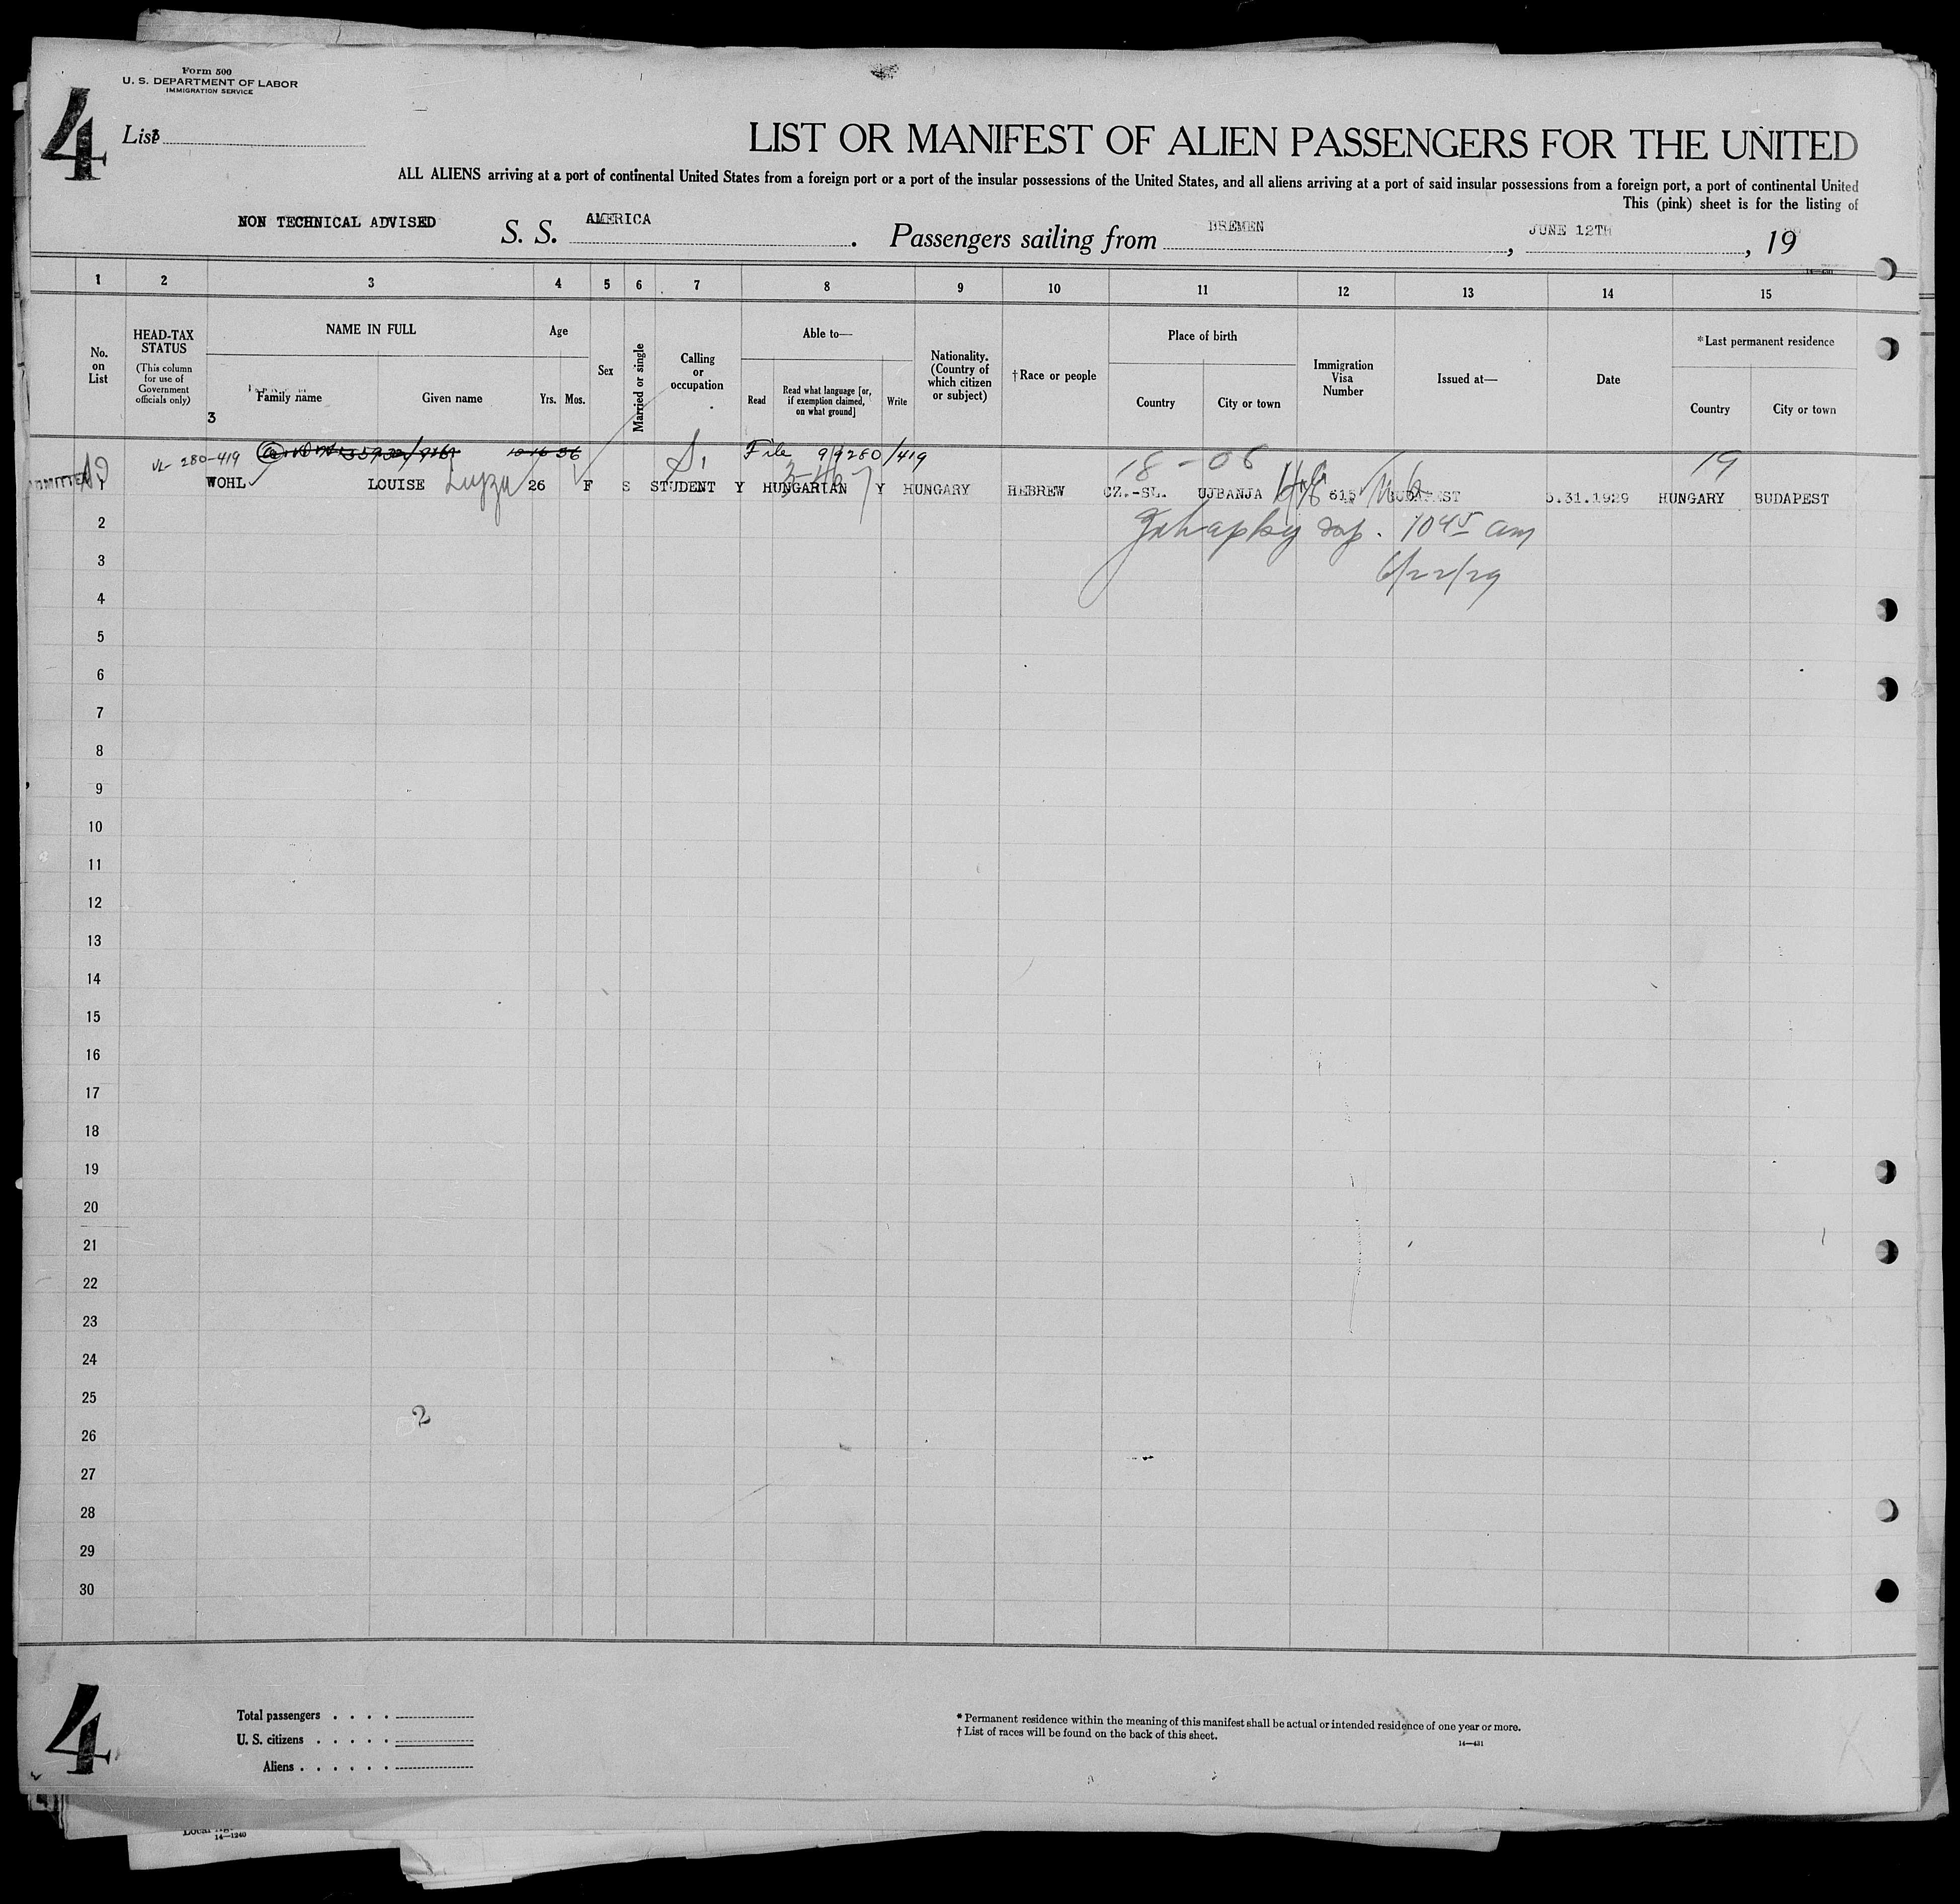 Form 500
U. S. DEPARTMENT OF LABOR
IMMIGRATION SERVICE
4
List 3
LIST OR MANIFEST OF ALIEN PASSENGERS FOR THE UNITED
ALL ALIENS arriving at a port of continental United States from a foreign port or a port of the insular possessions of the United States, and all aliens arriving at a port of said insular possessions from a foreign port, a port of continental United
This (pink) sheet is for the listing of
NON TECHNICAL ADVISED S. S. AMERICA. Passengers sailing from BREMEN, JUNE 12TH, 19
1 2 3 4 5 6 7 8 9 10 11 12 13 14 15
No. on List
HEAD-TAX STATUS
(This column for use of Government officials only)
NAME IN FULL
Family name
Given name
3
Age
Yrs. Mos.
Sex
Married or single
Calling or occupation
Able to—
Read
Read what language [or, if exemption claimed, on what ground]
Write
Nationality. (Country of which citizen or subject)
†Race or people
Place of birth
Country
City or town
Immigration Visa Number
Issued at—
Date
*Last permanent residence
Country
City or town
280-419 10 16 36 File 99280/419 18-06 19
ADMITTED 1 WOHL LOUISE Luyza 26 F S STUDENT Y HUNGARIAN Y HUNGARY HEBREW CZ.-SL. UJBANJA 615 BUDAPEST 5.31.1929 HUNGARY BUDAPEST
2 10 45 am
3 6/22/29
4
5
6
7
8
9
10
11
12
13
14
15
16
17
18
19
20
21
22
23
24
25
2
26
27
28
29
30
4
Total passengers
U. S. citizens
Aliens
* Permanent residence within the meaning of this manifest shall be actual or intended residence of one year or more.
† List of races will be found on the back of this sheet.
14—431
14—1240